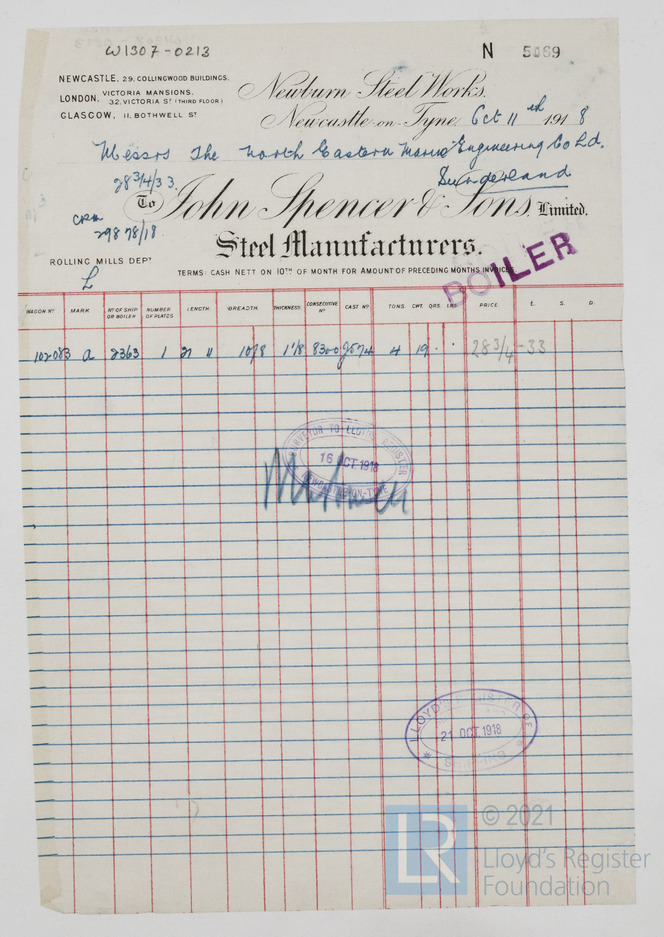 W1307-0213
N 5069
NEWCASTLE, 29, COLLINGWOOD BUILDINGS.
LONDON, VICTORIA MANSIONS, 32, VICTORIA ST (THIRD FLOOR)
GLASGOW, 11, BOTHWELL ST
Newburn Steel Works,
Newcastle-on-Tyne, Oct 11th 1918
Messrs The North Eastern Marine Engineering Co Ld.
Sunderland
28 3/4/33.
To John Spencer & Sons, Limited,
29878/18
Steel Manufacturers.
ROLLING MILLS DEPT
L
TERMS: CASH NETT ON 10TH OF MONTH FOR AMOUNT OF PRECEDING MONTHS INVOICES.
BOILER
WAGON NO MARK NO OF SHIP OR BOILER NUMBER OF PLATES LENGTH BREADTH THICKNESS CONSECUTIVE NO CAST NO TONS. CWT. QRS. LBS. PRICE. £. S. D.
102083 a 2363 1 21 11 10/8 1 1/8 8300 4 19 28 3/4-33
SURVEYOR TO LLOYDS REGISTER
16 OCT 1918
NEWCASTLE-ON-TYNE
LLOYD'S REGISTER OF
21 OCT. 1918
SHIPPING
LR
© 2021
Lloyd's Register
Foundation